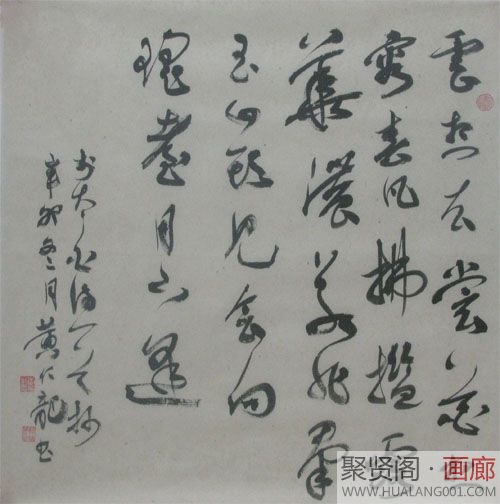 雲想衣裳花想
容春风拂檻露
華濃若非羣
玉山頭見會向
瑶臺月下逢
书太白诗
辛卯冬月黄仁龍书
聚贤阁·画廊
WWW.HUALANG001.COM